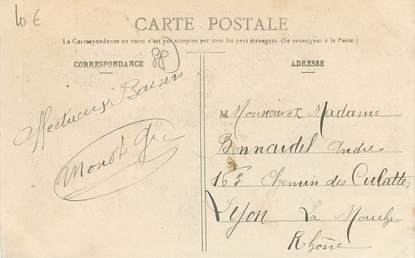 10 €
CARTE POSTALE
La Correspondance au recto n'est pas acceptée par tous les pays étrangers. (Se renseigner à la Poste.)
CORRESPONDANCE
ADRESSE
Affectueux Baisers
M Monsieur et Madame
Bonnardel André
163 Chemin des Culattes
Lyon La Mouche
Rhône